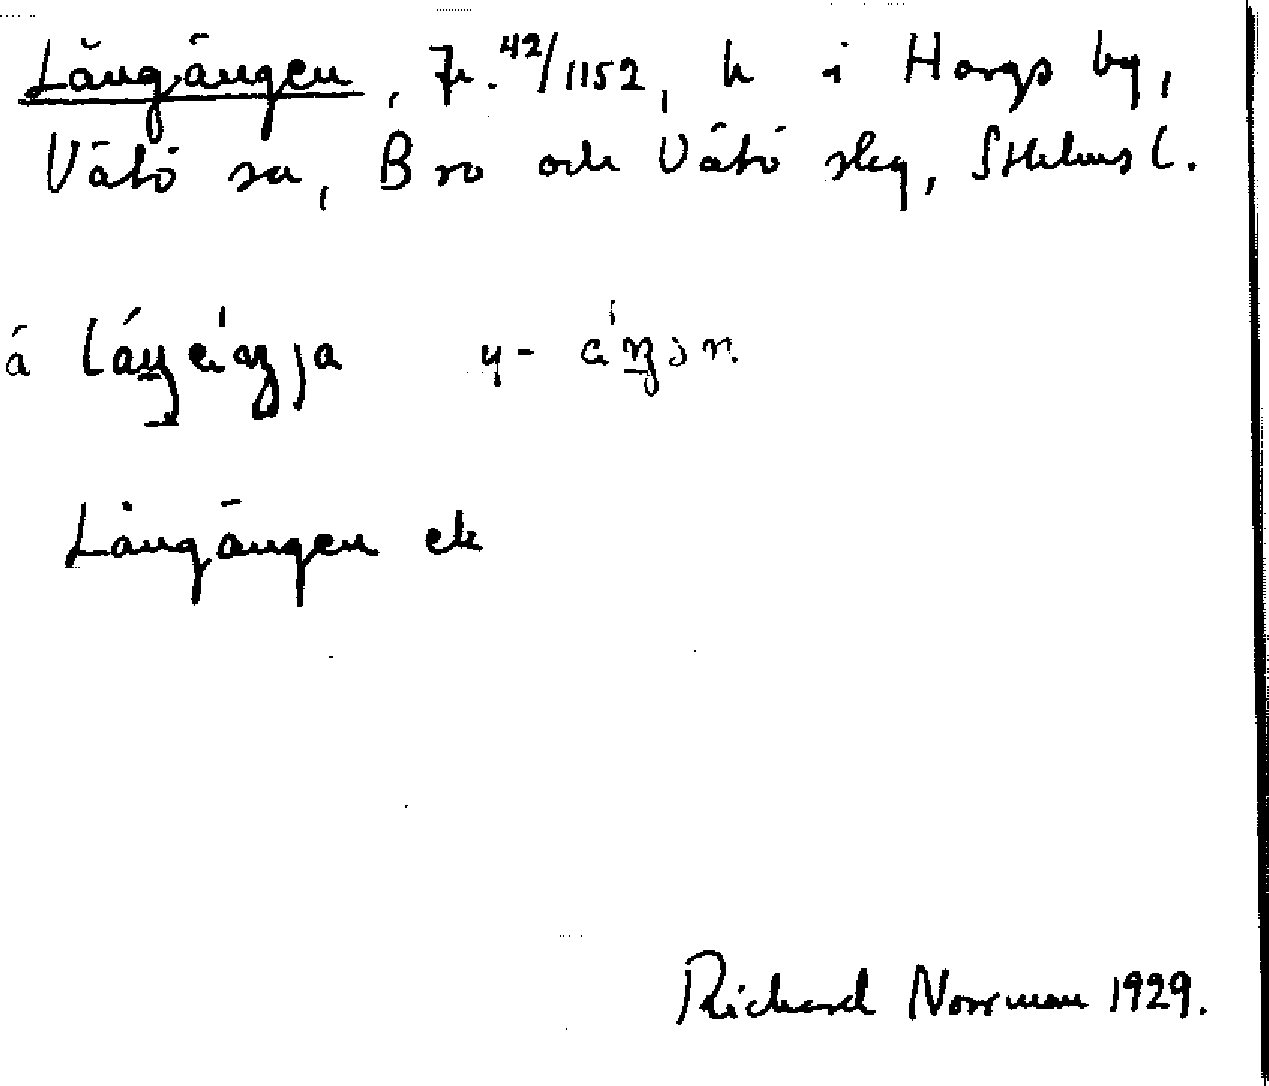 Långängen, Fr. 42/1152, h i Hargs by,
Vätö sn, Bro och Vätö skg, Sthlms l.
å
Långängen ek
Richard Norrman 1929.